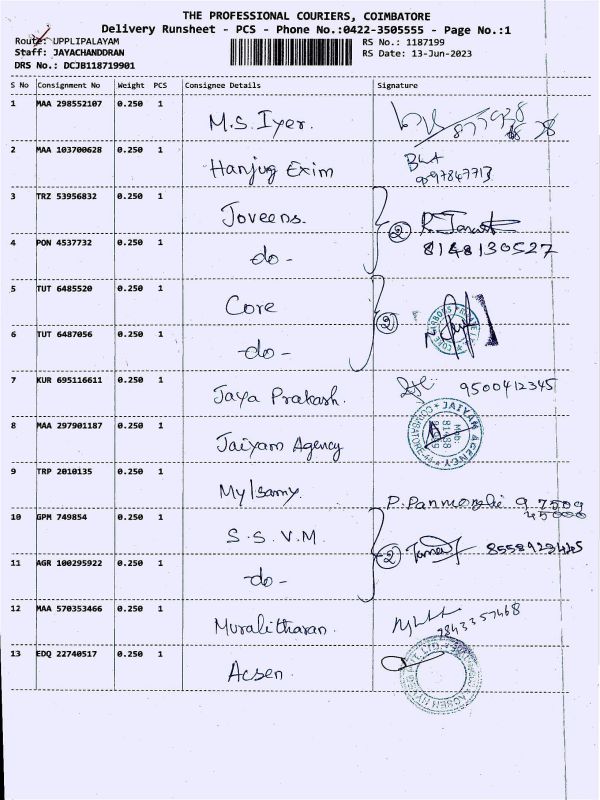 THE PROFESSIONAL COURIERS, COIMBATORE
Delivery Runsheet - PCS - Phone No.:0422-3505555 - Page No.:1
Route: UPPLIPALAYAM
RS No.: 1187199
Staff: JAYACHANDDRAN
RS Date: 13-Jun-2023
DRS No.: DCJB118719901
S No Consignment No Weight PCS Consignee Details Signature
1 MAA 298552107 0.250 1 M.S. Iyer.
2 MAA 103700628 0.250 1 Hanjug Exim
3 TRZ 53956832 0.250 1 Joveens.
②
4 PON 4537732 0.250 1 -do- 8148130527
5 TUT 6485520 0.250 1 Core
②
6 TUT 6487056 0.250 1 -do-
7 KUR 695116611 0.250 1 Jaya Prakash. 9500412345
8 MAA 297901187 0.250 1 Jaiyam Agency
JAIYAM AGENCY
COIMBATORE
Mob:
9 TRP 2010135 0.250 1 Mylsamy. 97509
45000
10 GPM 749854 0.250 1 S.S.V.M.
②
11 AGR 100295922 0.250 1 -do-
12 MAA 570353466 0.250 1 Muralitharan. 7843357468
13 EDQ 22740517 0.250 1 Acsen.